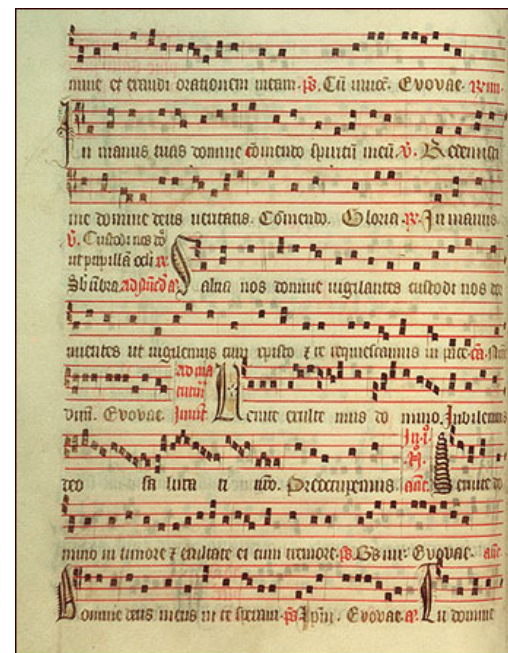 mine et exaudi orationem meam. ps. Cū invoc. Evovae.
In manus tuas domine cōmendo spiritū meū. v. Redemisti
me domine deus veritatis. Cōmendo. Gloria. R. In manus
v. Custodi nos dō
ut pupillā oculi
Sb ūbra. Salva nos domine vigilantes custodi nos dor
mientes ut vigilemus cum xpisto et requiescamus in pace.
Evovae. Venite exulte mus do mino. Jubilemus
deo sa luta ri nro. Preoccupemus Servite do
mino in timore et exultate ei cum tremore. ps. Evovae.
Domine deus meus in te speravi. ps. Ipm. Evovae. a. Tu domine